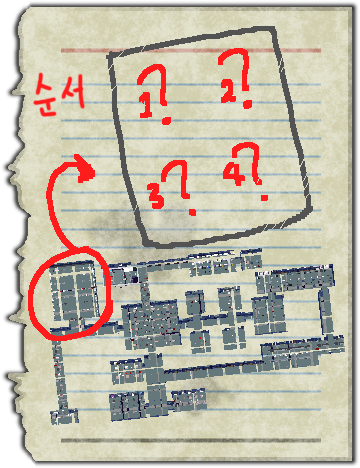 순서
1? 2?
3? 4?